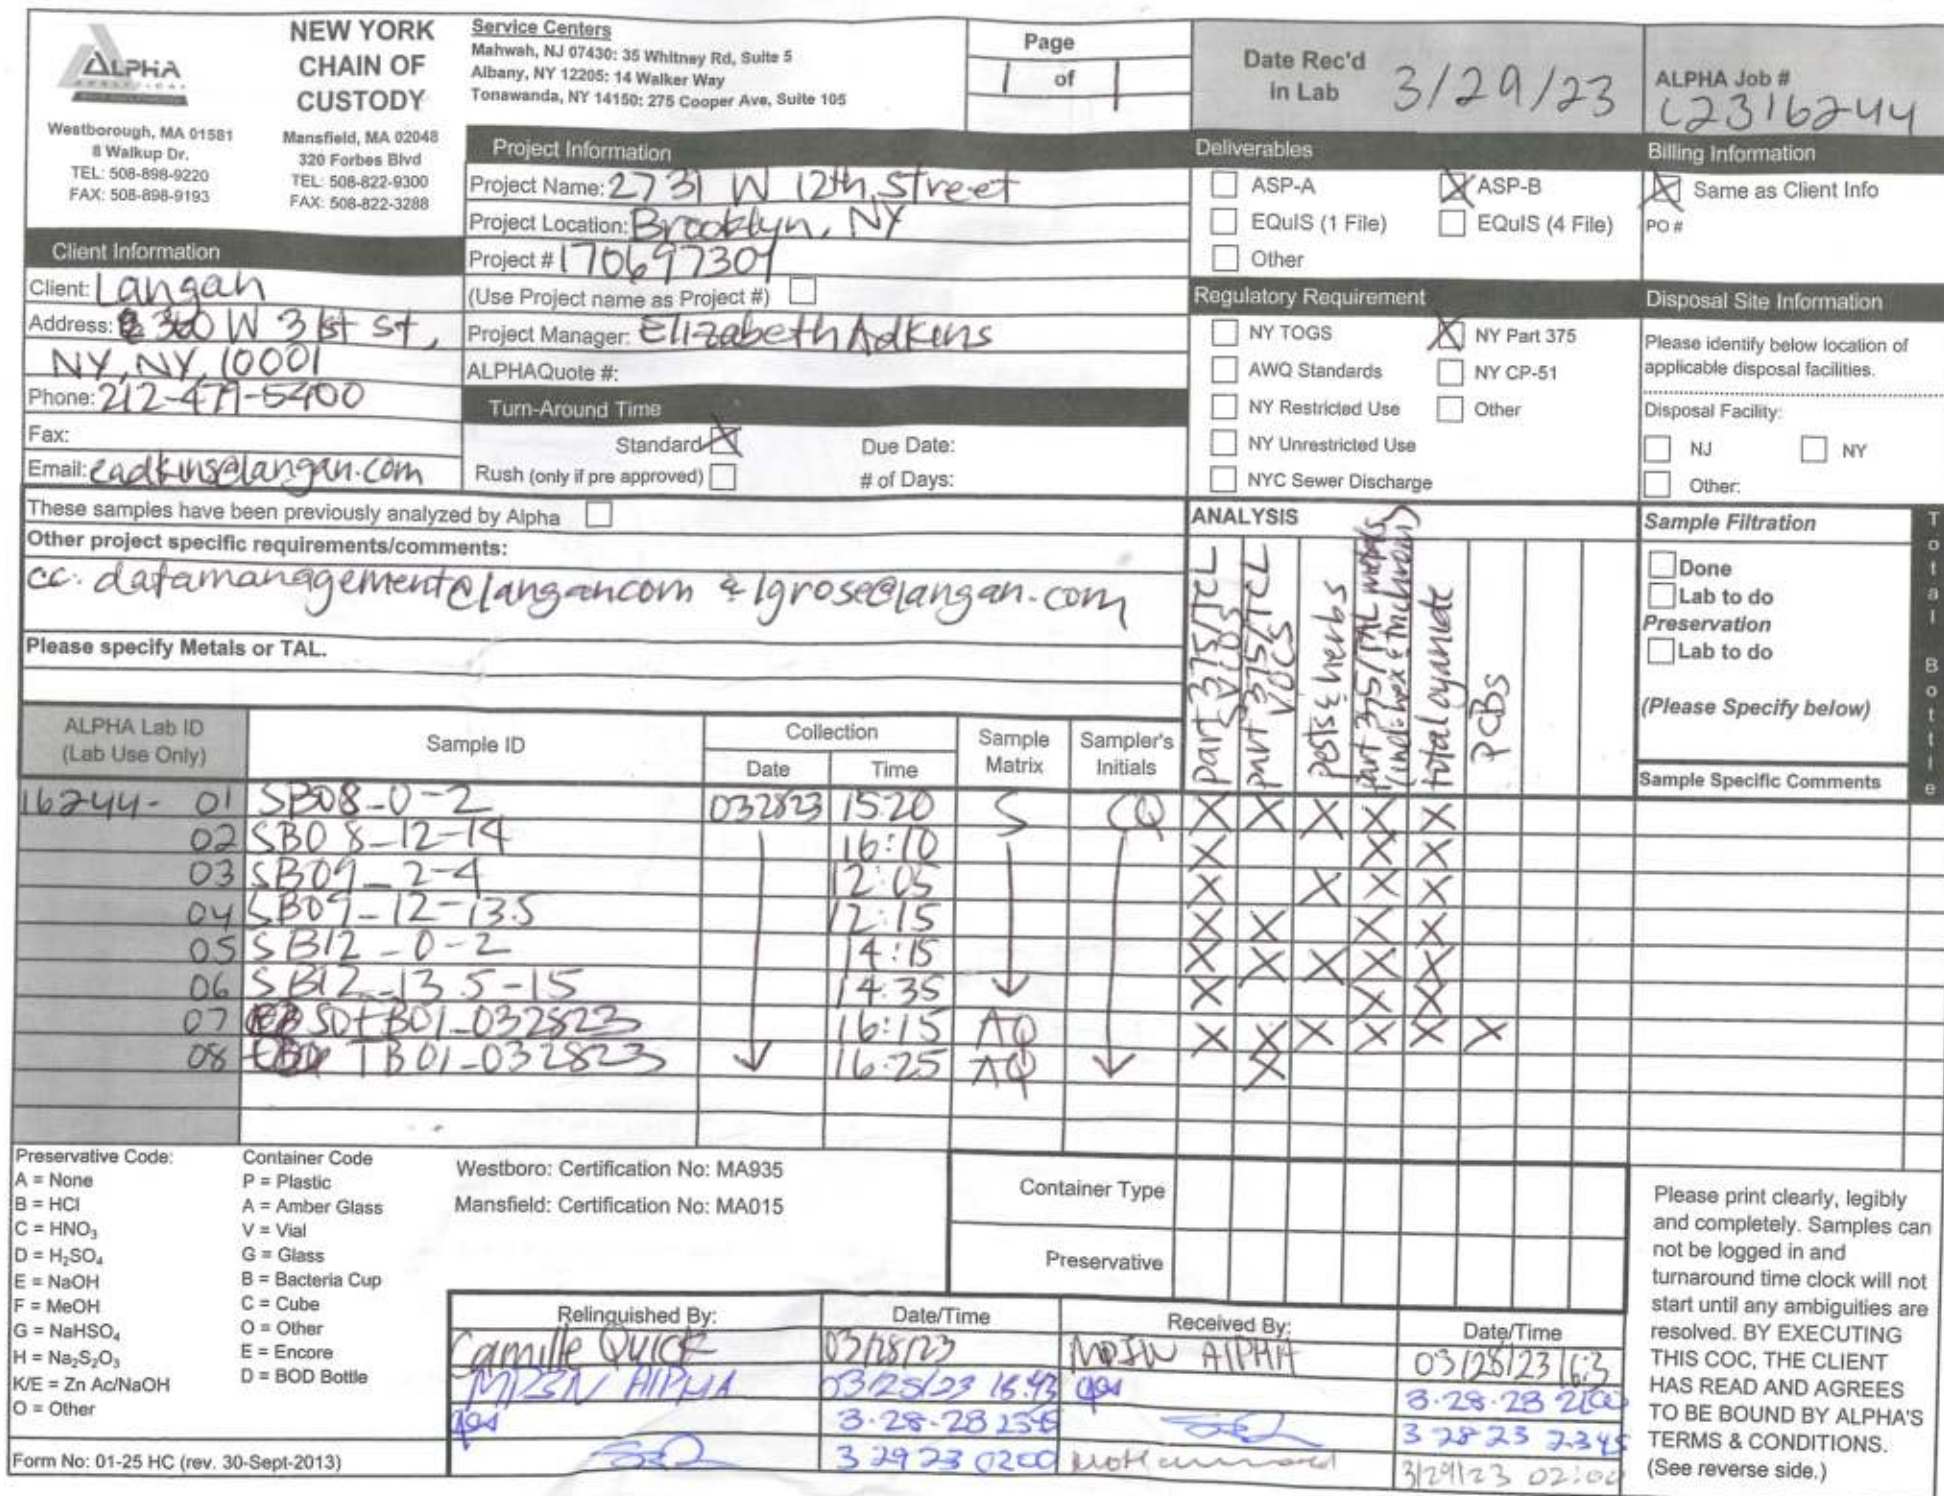 ALPHA
ANALYTICAL
Westborough, MA 01581
8 Walkup Dr.
TEL: 508-898-9220
FAX: 508-898-9193
NEW YORK
CHAIN OF
CUSTODY
Mansfield, MA 02048
320 Forbes Blvd
TEL: 508-822-9300
FAX: 508-822-3288
Service Centers
Mahwah, NJ 07430: 35 Whitney Rd, Suite 5
Albany, NY 12205: 14 Walker Way
Tonawanda, NY 14150: 275 Cooper Ave, Suite 105
Page
1 of 1
Date Rec'd
in Lab 3/29/23
ALPHA Job #
L2316244
Client Information
Client: Langan
Address: 360 W 31st St,
NY, NY, 10001
Phone: 212-479-5400
Fax:
Email: eadkins@langan.com
Project Information
Project Name: 2731 W 12th Street
Project Location: Brooklyn, NY
Project # 170697301
(Use Project name as Project #)
Project Manager: Elizabeth Adkins
ALPHAQuote #:
Turn-Around Time
Standard X Due Date:
Rush (only if pre approved) # of Days:
Deliverables
ASP-A X ASP-B
EQuIS (1 File) EQuIS (4 File)
Other
Regulatory Requirement
NY TOGS X NY Part 375
AWQ Standards NY CP-51
NY Restricted Use Other
NY Unrestricted Use
NYC Sewer Discharge
Billing Information
X Same as Client Info
PO #
Disposal Site Information
Please identify below location of
applicable disposal facilities.
Disposal Facility:
NJ NY
Other:
These samples have been previously analyzed by Alpha
Other project specific requirements/comments:
cc: datamanagement@langan.com & lgrose@langan.com
Please specify Metals or TAL.
ANALYSIS
part 375/TCL SVOCs
part 375/TCL VOCs
pests & herbs
part 375/TAL metals (incl. hex & trichrom)
total cyanide
PCBs
Sample Filtration
Done
Lab to do
Preservation
Lab to do
(Please Specify below)
Total Bottle
ALPHA Lab ID
(Lab Use Only)
Sample ID
Collection
Date Time
Sample
Matrix
Sampler's
Initials
Sample Specific Comments
16244- 01 SB08_0-2 032823 15:20 S CQ X X X X X
02 SB08_12-14 16:10 X X X
03 SB09_2-4 12:05 X X X X
04 SB09_12-13.5 12:15 X X X X
05 SB12_0-2 14:15 X X X X X
06 SB12_13.5-15 14:35 X X X
07 SOFB01_032823 16:15 AQ X X X X X X
08 TB01_032823 16:25 AQ X
Preservative Code:
A = None
B = HCl
C = HNO₃
D = H₂SO₄
E = NaOH
F = MeOH
G = NaHSO₄
H = Na₂S₂O₃
K/E = Zn Ac/NaOH
O = Other
Container Code
P = Plastic
A = Amber Glass
V = Vial
G = Glass
B = Bacteria Cup
C = Cube
O = Other
E = Encore
D = BOD Bottle
Westboro: Certification No: MA935
Mansfield: Certification No: MA015
Container Type
Preservative
Relinquished By: Date/Time Received By: Date/Time
Camille Quick 03/28/23 ALPHA 03/28/23
ALPHA
3 29 23 0200 3/29/23 02:00
3 28 23 2345
Please print clearly, legibly
and completely. Samples can
not be logged in and
turnaround time clock will not
start until any ambiguities are
resolved. BY EXECUTING
THIS COC, THE CLIENT
HAS READ AND AGREES
TO BE BOUND BY ALPHA'S
TERMS & CONDITIONS.
(See reverse side.)
Form No: 01-25 HC (rev. 30-Sept-2013)